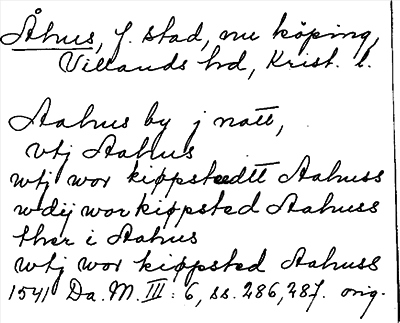 Åhus, f. stad, nu köping,
Villands hd, Krist. l.
Aahus by j natt,
vtj Aahus
wtj wor kiøpstedtt Aahuss
wdij wor kiøpsted Aahuss
ther i Aahus
wtj wor kiøpsted Aahuss
1541 Da. M. III: 6, ss. 286, 287. orig.